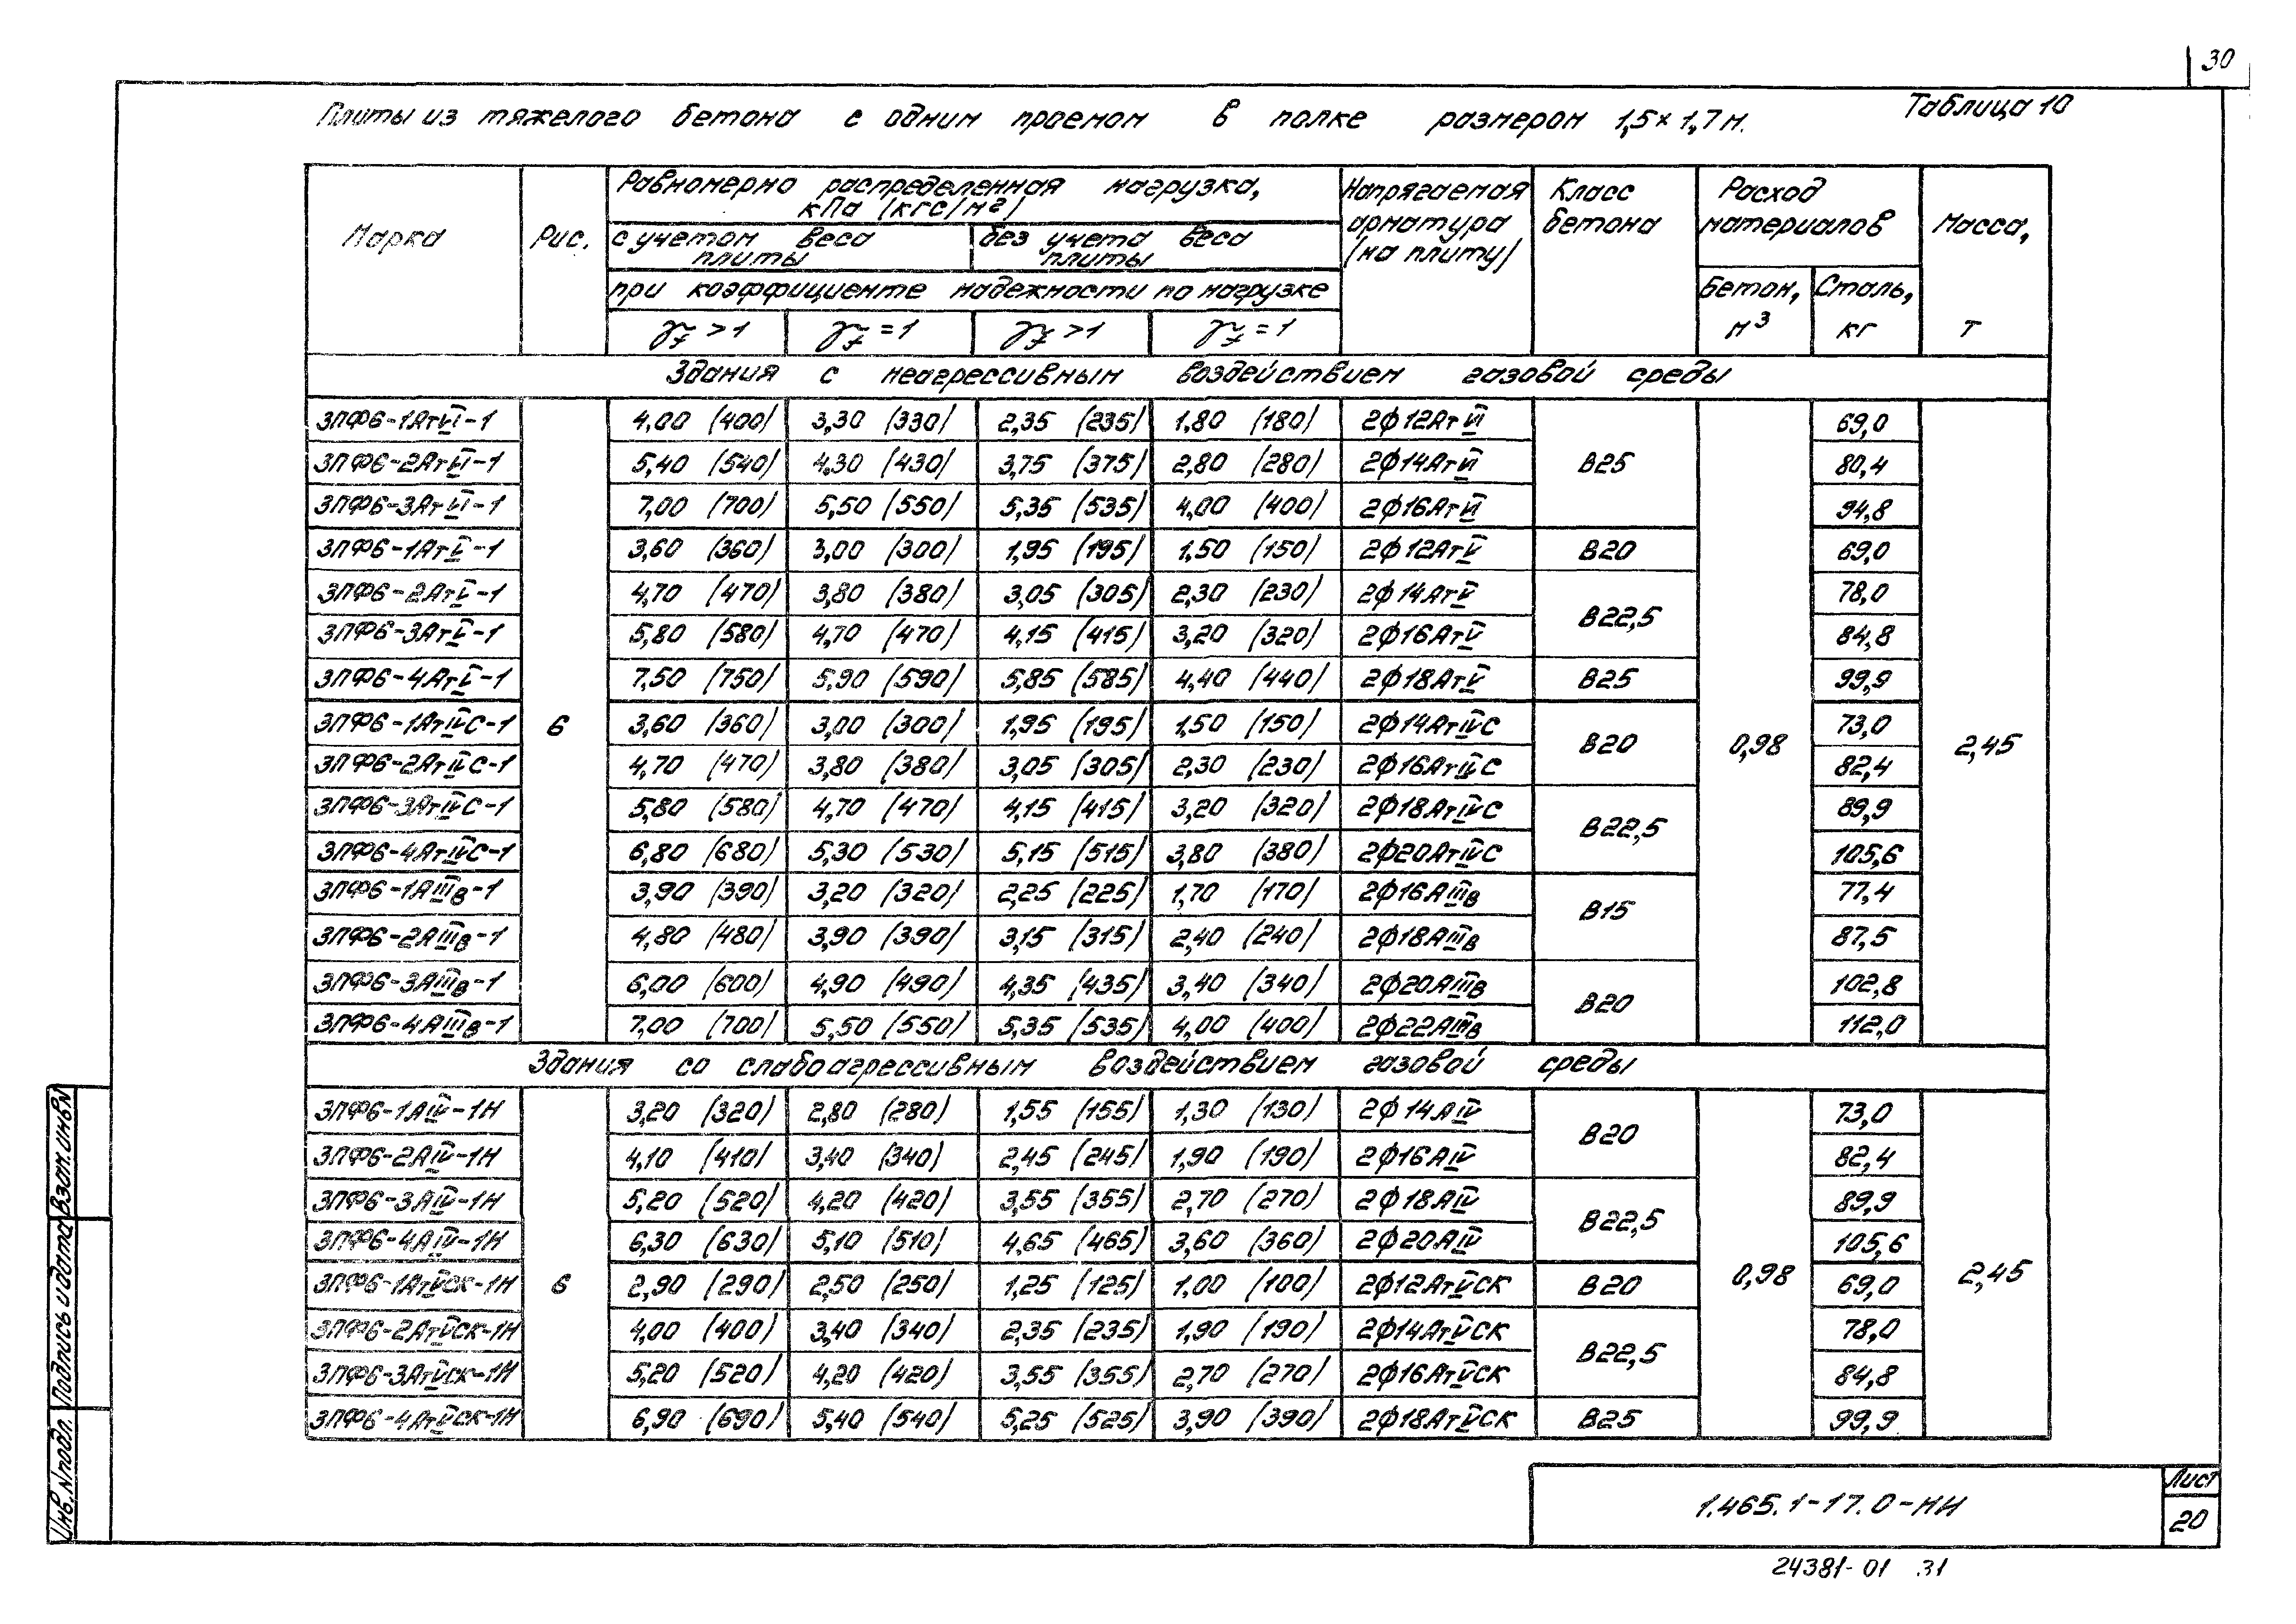 30
Таблица 10
Плиты из тяжелого бетона с одним проемом в полке размером 1,5×1,7м.
Марка
Рис.
Равномерно распределенная нагрузка,
кПа (кгс/м²)
с учетом веса
плиты
без учета веса
плиты
при коэффициенте надежности по нагрузке
γf >1
γf =1
γf >1
γf =1
Напрягаемая
арматура
(на плиту)
Класс
бетона
Расход
материалов
Бетон,
м³
Сталь,
кг
Масса,
т
Здания с неагрессивным воздействием газовой среды
3ПФ6-1АтVI-1 4,00 (400) 3,30 (330) 2,35 (235) 1,80 (180) 2ф12АтVI 69,0
3ПФ6-2АтVI-1 5,40 (540) 4,30 (430) 3,75 (375) 2,80 (280) 2ф14АтVI В25 80,4
3ПФ6-3АтVI-1 7,00 (700) 5,50 (550) 5,35 (535) 4,00 (400) 2ф16АтVI 94,8
3ПФ6-1АтV-1 3,60 (360) 3,00 (300) 1,95 (195) 1,50 (150) 2ф12АтV В20 69,0
3ПФ6-2АтV-1 4,70 (470) 3,80 (380) 3,05 (305) 2,30 (230) 2ф14АтV В22,5 78,0
3ПФ6-3АтV-1 5,80 (580) 4,70 (470) 4,15 (415) 3,20 (320) 2ф16АтV 84,8
3ПФ6-4АтV-1 7,50 (750) 5,90 (590) 5,85 (585) 4,40 (440) 2ф18АтV В25 99,9
3ПФ6-1АтIVС-1 6 3,60 (360) 3,00 (300) 1,95 (195) 1,50 (150) 2ф14АтIVС В20 0,98 73,0 2,45
3ПФ6-2АтIVС-1 4,70 (470) 3,80 (380) 3,05 (305) 2,30 (230) 2ф16АтIVС 82,4
3ПФ6-3АтIVС-1 5,80 (580) 4,70 (470) 4,15 (415) 3,20 (320) 2ф18АтIVС В22,5 89,9
3ПФ6-4АтIVС-1 6,80 (680) 5,30 (530) 5,15 (515) 3,80 (380) 2ф20АтIVС 105,6
3ПФ6-1АIIIв-1 3,90 (390) 3,20 (320) 2,25 (225) 1,70 (170) 2ф16АIIIв В15 77,4
3ПФ6-2АIIIв-1 4,80 (480) 3,90 (390) 3,15 (315) 2,40 (240) 2ф18АIIIв 87,5
3ПФ6-3АIIIв-1 6,00 (600) 4,90 (490) 4,35 (435) 3,40 (340) 2ф20АIIIв В20 102,8
3ПФ6-4АIIIв-1 7,00 (700) 5,50 (550) 5,35 (535) 4,00 (400) 2ф22АIIIв 112,0
Здания со слабоагрессивным воздействием газовой среды
3ПФ6-1АIV-1Н 3,20 (320) 2,80 (280) 1,55 (155) 1,30 (130) 2ф14АIV В20 73,0
3ПФ6-2АIV-1Н 4,10 (410) 3,40 (340) 2,45 (245) 1,90 (190) 2ф16АIV 82,4
3ПФ6-3АIV-1Н 5,20 (520) 4,20 (420) 3,55 (355) 2,70 (270) 2ф18АIV В22,5 89,9
3ПФ6-4АIV-1Н 6,30 (630) 5,10 (510) 4,65 (465) 3,60 (360) 2ф20АIV 105,6
3ПФ6-1АтVСК-1Н 6 2,90 (290) 2,50 (250) 1,25 (125) 1,00 (100) 2ф12АтVСК В20 0,98 69,0 2,45
3ПФ6-2АтVСК-1Н 4,00 (400) 3,40 (340) 2,35 (235) 1,90 (190) 2ф14АтVСК В22,5 78,0
3ПФ6-3АтVСК-1Н 5,20 (520) 4,20 (420) 3,55 (355) 2,70 (270) 2ф16АтVСК 84,8
3ПФ6-4АтVСК-1Н 6,90 (690) 5,40 (540) 5,25 (525) 3,90 (390) 2ф18АтVСК В25 99,9
Инв. N подл. Подпись и дата Взам. инв N
1.465.1-17.0-НИ
Лист
20
24381-01 31